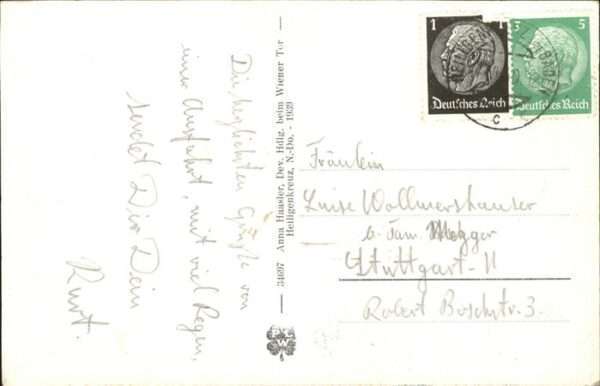 Die herzlichsten Grüße von
einer Ausfahrt, mit viel Regen,
sendet Dir Dein
Kurt.
— 34697 Anna Haasler, Dev. Hdlg. beim Wiener Tor —
Heiligenkreuz, N.-Do. - 1939
P W
6
1 1
Deutsches Reich
5 5
Deutsches Reich
HEILIGEN
c
Fräulein
Luise Wollmershauser
b. Fam. Metzger
Stuttgart-N
Robert Boschstr. 3.